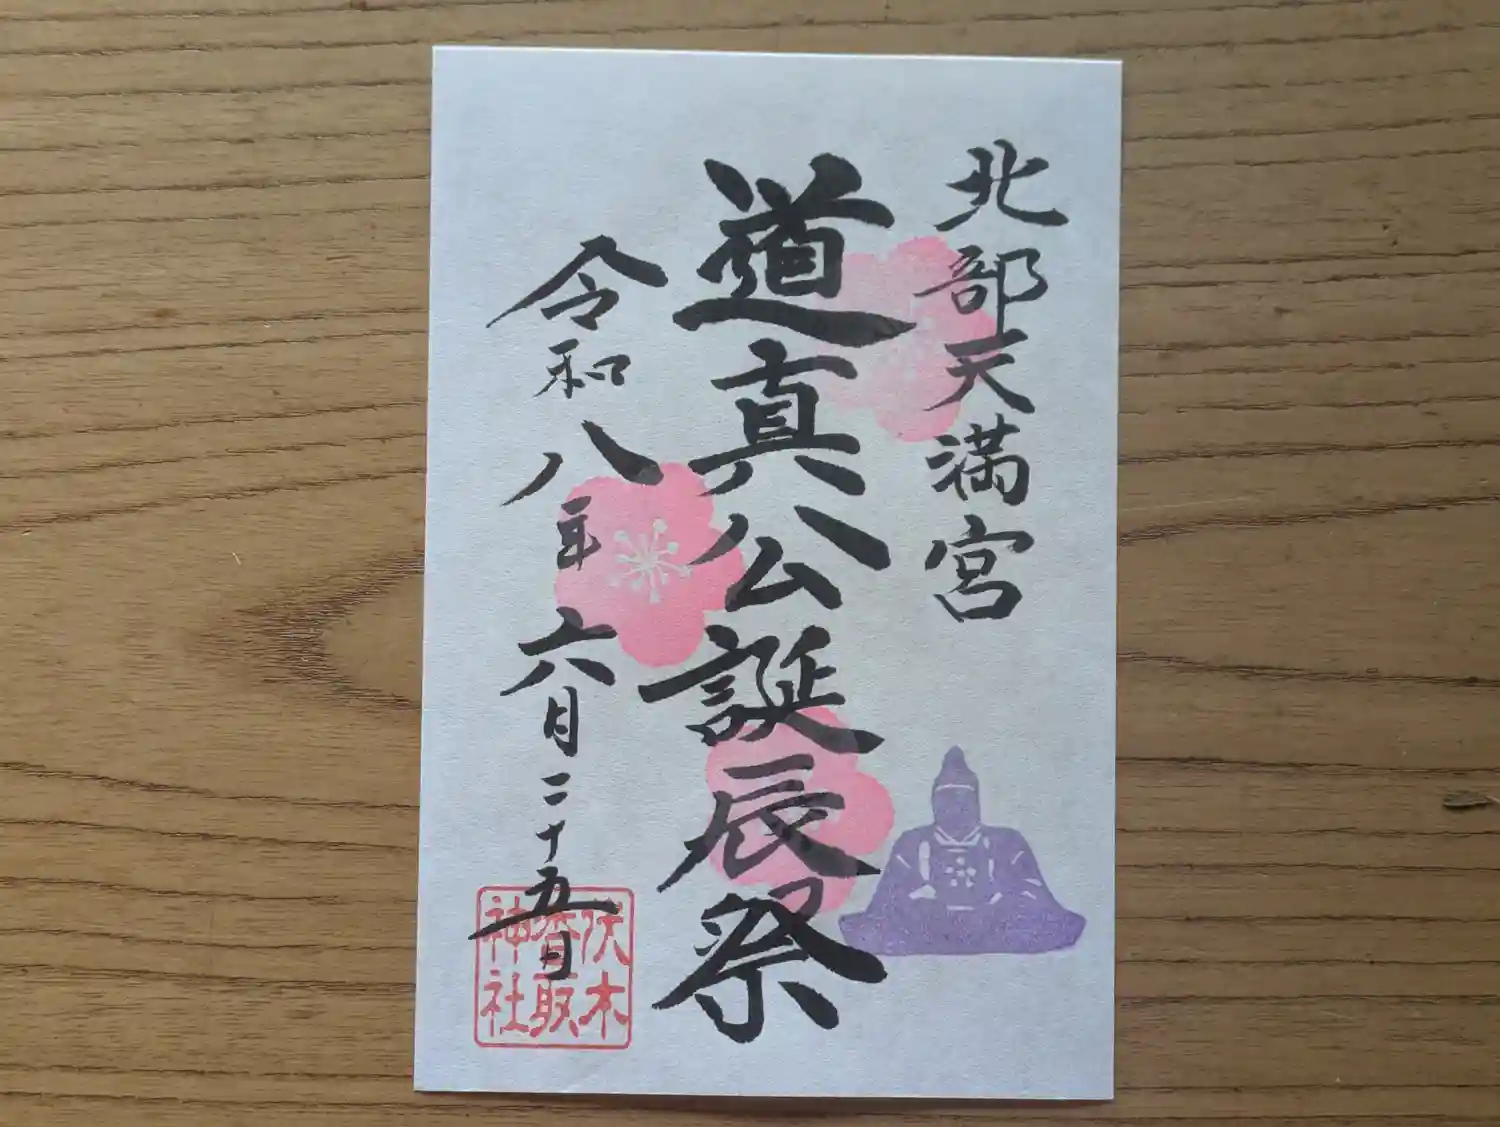 北部天満宮
道真公誕辰祭
令和八年六月二十五日
伏木
香取
神社